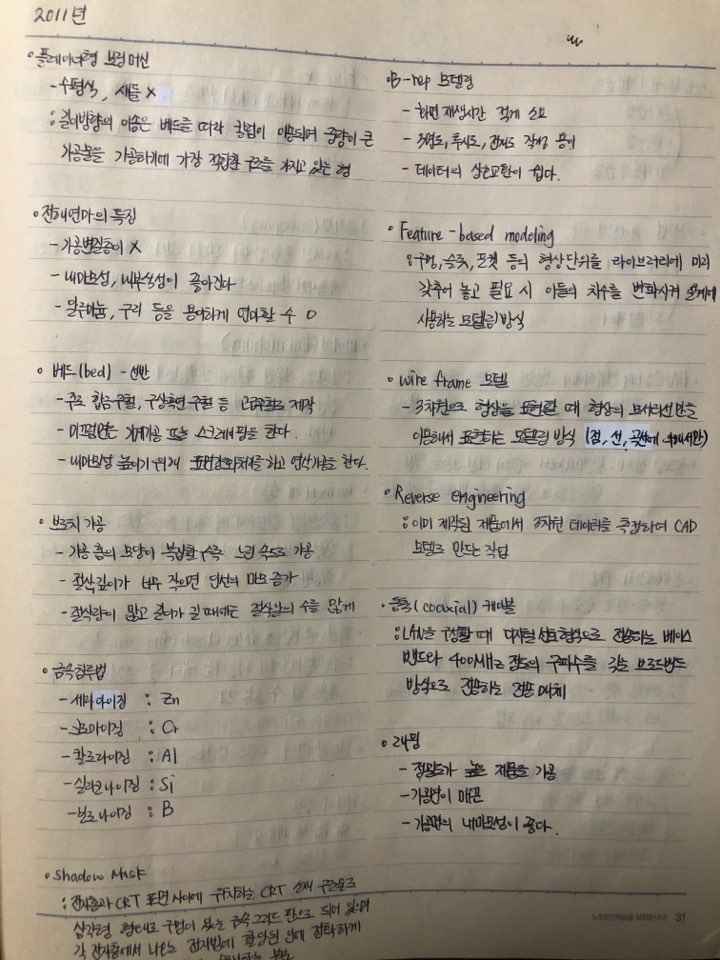 2011년
• 플레이너형 보링머신
- 수평식, 새들 X
: 길이방향의 이송은 베드를 따라 컬럼이 이동되며 중량이 큰
가공물을 가공하기에 가장 적합한 구조를 가지고 있는 형
• 전해연마의 특징
- 가공변질층이 X
- 내마모성, 내부식성이 좋아진다
- 알루미늄, 구리 등을 용이하게 연마할 수 O
• 베드(bed) - 선반
- 구조 합금주철, 구상흑연주철 등 고급주철로 제작
- 미끄럼면은 기계가공 또는 스크레이핑을 한다.
- 내마모성 높이기 위해 표면경화처리를 하고 연삭가공을 한다.
• 브로치 가공
- 가공 홈의 모양이 복잡할수록 느린 속도로 가공
- 절삭깊이가 너무 작으면 인선의 마모 증가
- 절삭량이 많고 길이가 길 때에는 절삭날의 수를 많게
• 금속침투법
- 세라다이징 : Zn
- 크로마이징 : Cr
- 칼로라이징 : Al
- 실리코나이징 : Si
- 보로나이징 : B
• Shadow Mask
: 전자총과 CRT 표면 사이에 위치하는 CRT 소재 구조물로
삼각형 형태로 구멍이 있는 금속 그리드 판으로 되어 있으며
각 전자총에서 나오는 전자빔에 할당된 인에 정확하게
• B-rep 모델링
- 화면 재생시간 적게 소요
- 3면도, 투시도, 전개도 작성 용이
- 데이터의 상호교환이 쉽다.
• Feature-based modeling
: 구멍, 슬롯, 포켓 등의 형상단위를 라이브러리에 미리
갖추어 놓고 필요 시 이들의 치수를 변화시켜 설계에
사용하는 모델링 방식
• wire frame 모델
- 3차원으로 형상을 표현할 때 형상의 모서리선만을
이용해서 표현하는 모델링 방식 (점, 선, 곡선에 의해서만)
• Reverse engineering
: 이미 제작된 제품에서 3차원 데이터를 측정하여 CAD
모델로 만드는 작업
• 동축(coaxial) 케이블
: LAN을 구성할 때 디지털 신호형식으로 전송하는 베이스
밴드와 400MHz 정도의 주파수를 갖는 브로드밴드
방식으로 전송하는 전송매체
• 래핑
- 정밀도가 높은 제품을 가공
- 가공면이 매끈
- 가공면의 내마모성이 좋다.
31